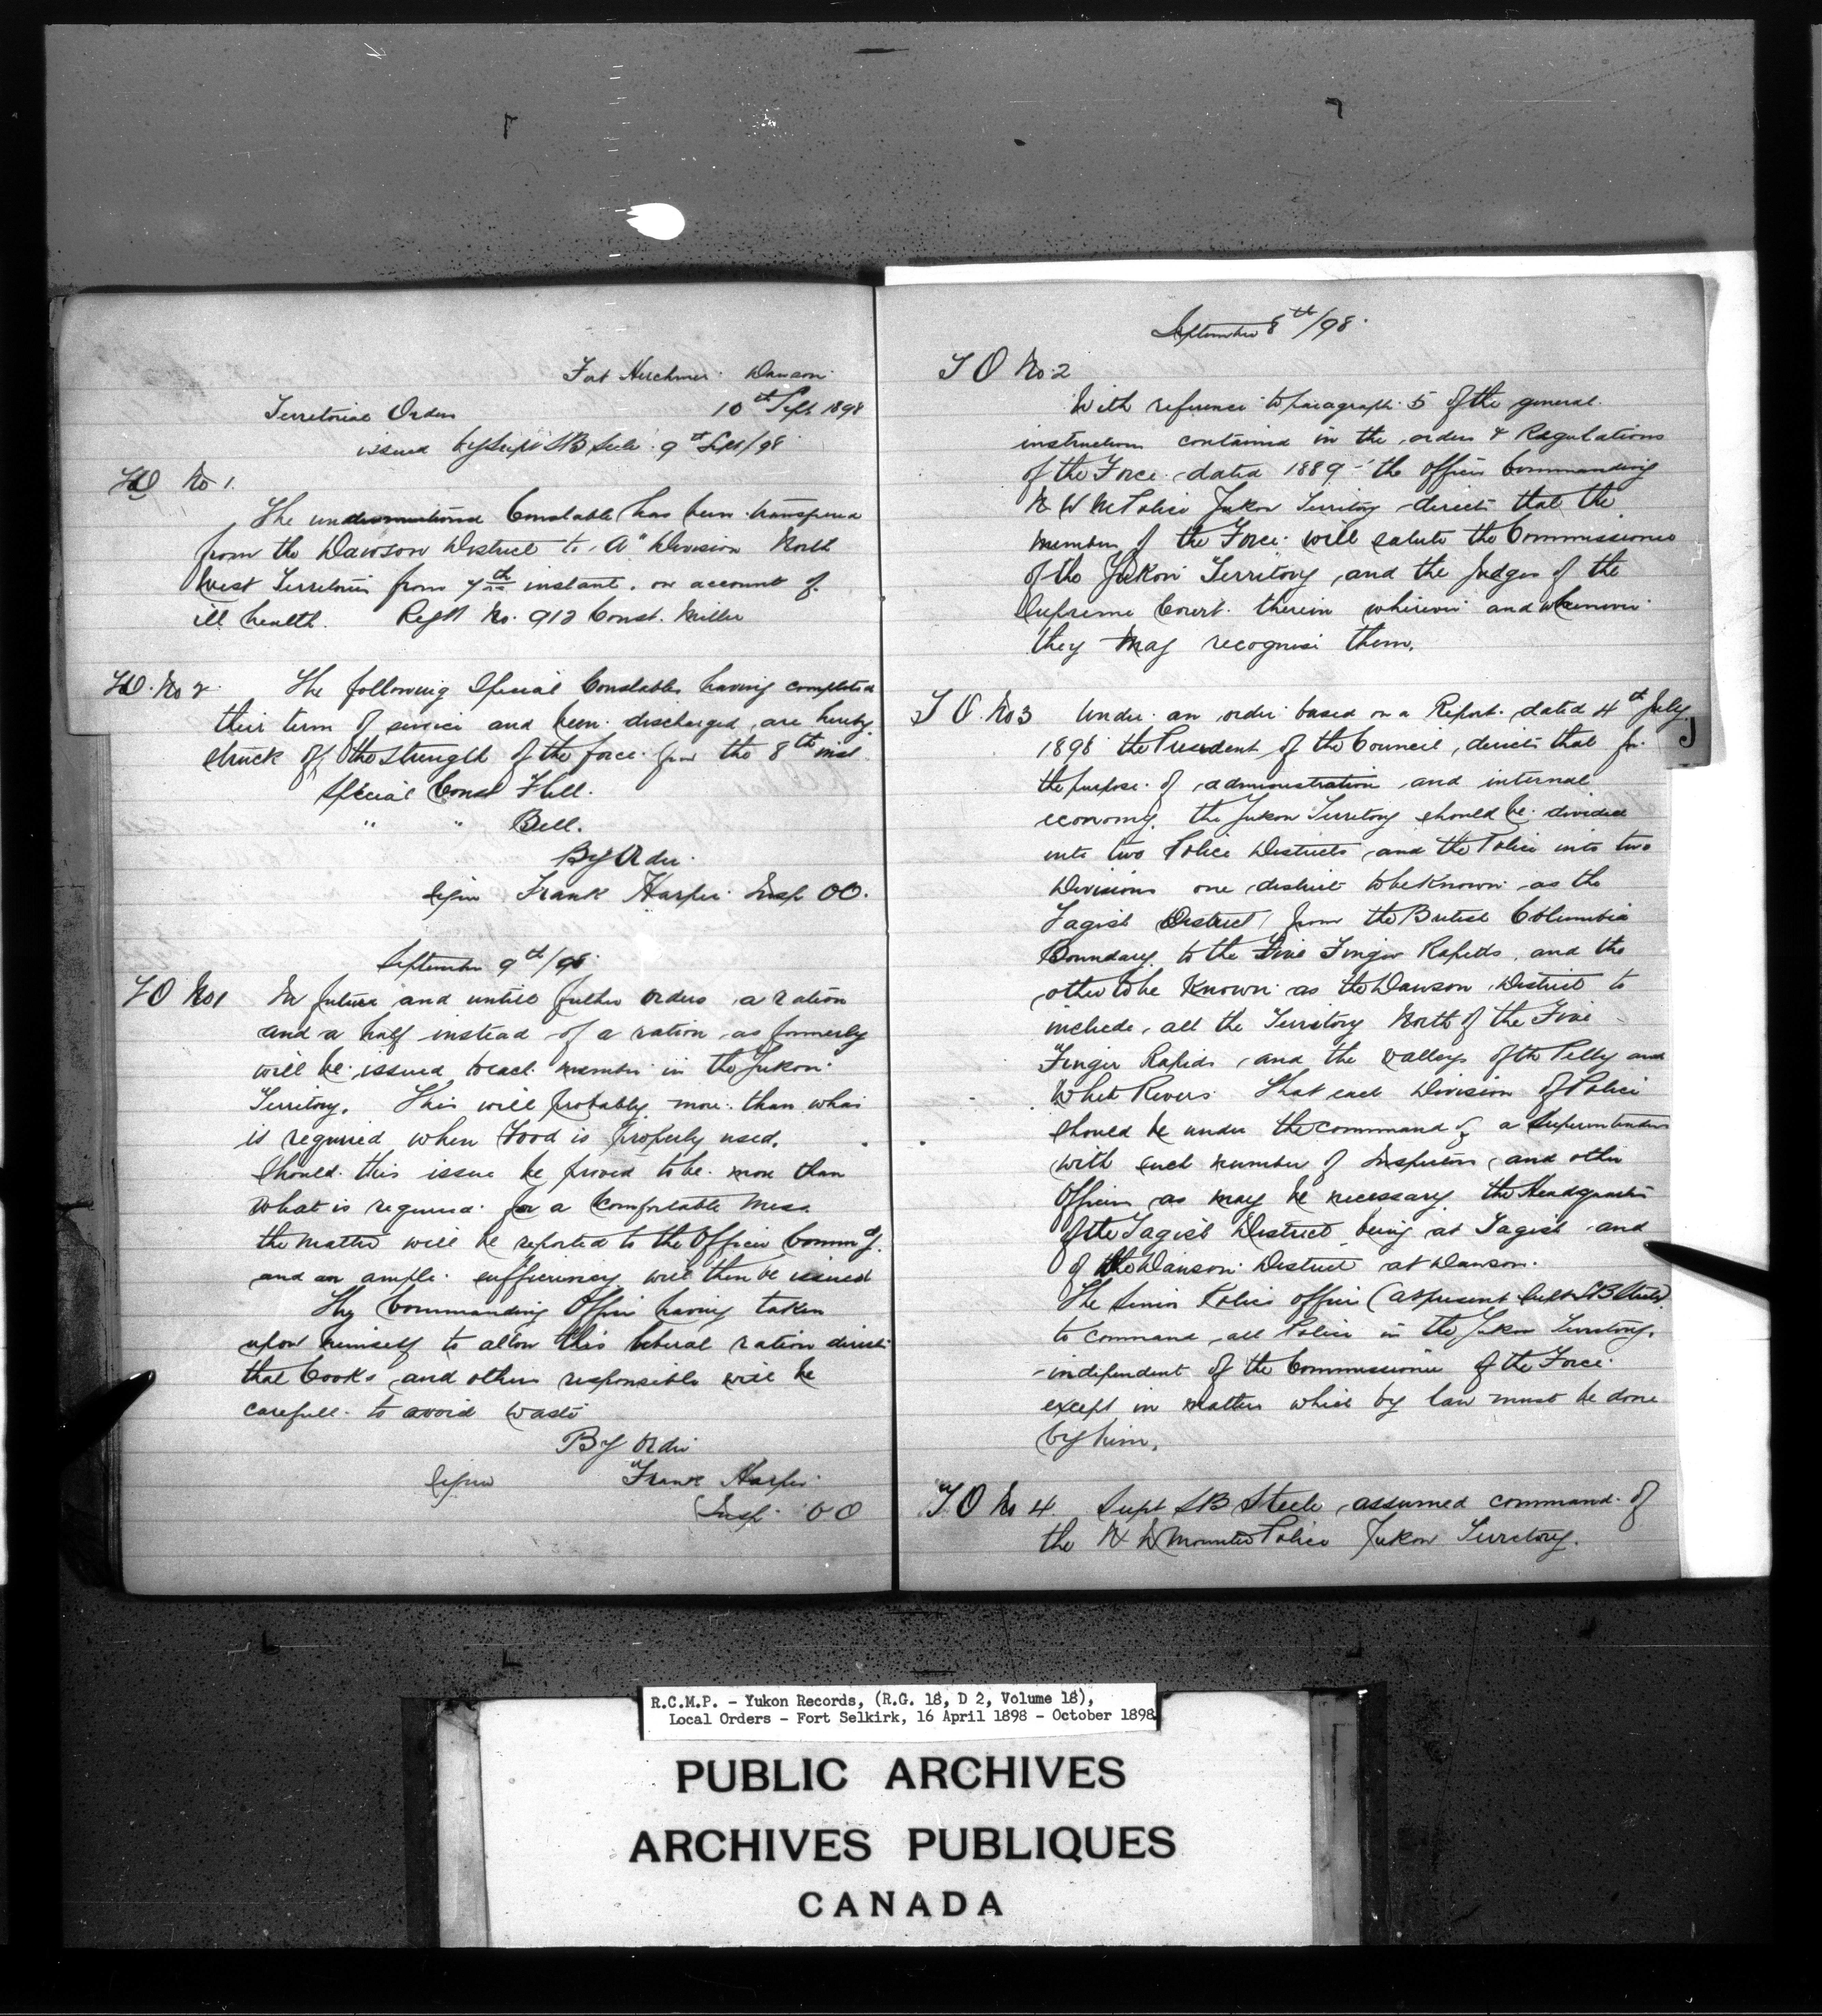 Fort Herchmer Dawson
Territorial Orders 10th Sept 1898
issued by Supt SB Steele 9th Sept/98
TO No 1.
The undermentioned Constable has been transfered
from the Dawson District to "A" Division North
West Territories from 7th instant. on account of
ill health. Regtl No. 912 Const. Miller
TO. No 2. The following Special Constables having completed
their term of service and been discharged are hereby
struck off the strength of the force from the 8th inst.
Special Const Hill.
" " Bell.
By Order.
Sign Frank Harper Insp OO.
September 9th/98
TO No 1 In future and untill further orders a ration
and a half instead of a ration as formerly
will be issued to each member in the Yukon
Territory. This will probably more than what
is required when Food is properly used.
Should this issue be proved to be more than
what is required for a Comfortable Mess
the matter will be reported to the Officer Commdg.
and an ample sufficiency will then be issued
The Commanding Officer having taken
upon himself to allow this liberal ration directs
that Cooks and others responsible will be
carefull to avoid waste
By Order
Sign Frank Harper
Insp. OO
September 8th/98.
TO No. 2
With reference to paragraph 5 of the general
instructions contained in the orders & Regulations
of the Force dated 1889 - the officer Commanding
N W M Police Yukon Territory directs that the
members of the Force will salute the Commissioner
of the Yukon Territory, and the Judges of the
Supreme Court therein wherever and whenever
they may recognise them.
TO. No 3 Under an order based on a Report dated 4th July
1898 the President of the Council, directs that for
the purpose of administration and internal
economy. the Yukon Territory should be divided
into two Police Districts, and the Police into two
Divisions one district to be known as the
Tagish District from the British Columbia
Boundary to the Five Finger Rapids, and the
other to be known as the Dawson District to
include, all the Territory North of the Five
Finger Rapids and the valleys of the Pelly and
White Rivers. That each Division of Police
should be under the command of a Superintendent
with such number of Inspectors, and other
Officers as may be necessary. the Headquarters
of the Tagish District being at Tagish and
of the Dawson District at Dawson.
The Senior Police officer (at present Supt SB Steele)
to command all Police in the Yukon Territory.
independent of the Commissioner of the Force
except in matters which by law must be done
by him.
TO No 4. Supt SB Steele assumed command of
the N W Mounted Police Yukon Territory.
J
R.C.M.P. - Yukon Records, (R.G. 18, D 2, Volume 18),
Local Orders - Fort Selkirk, 16 April 1898 - October 1898.
PUBLIC ARCHIVES
ARCHIVES PUBLIQUES
CANADA